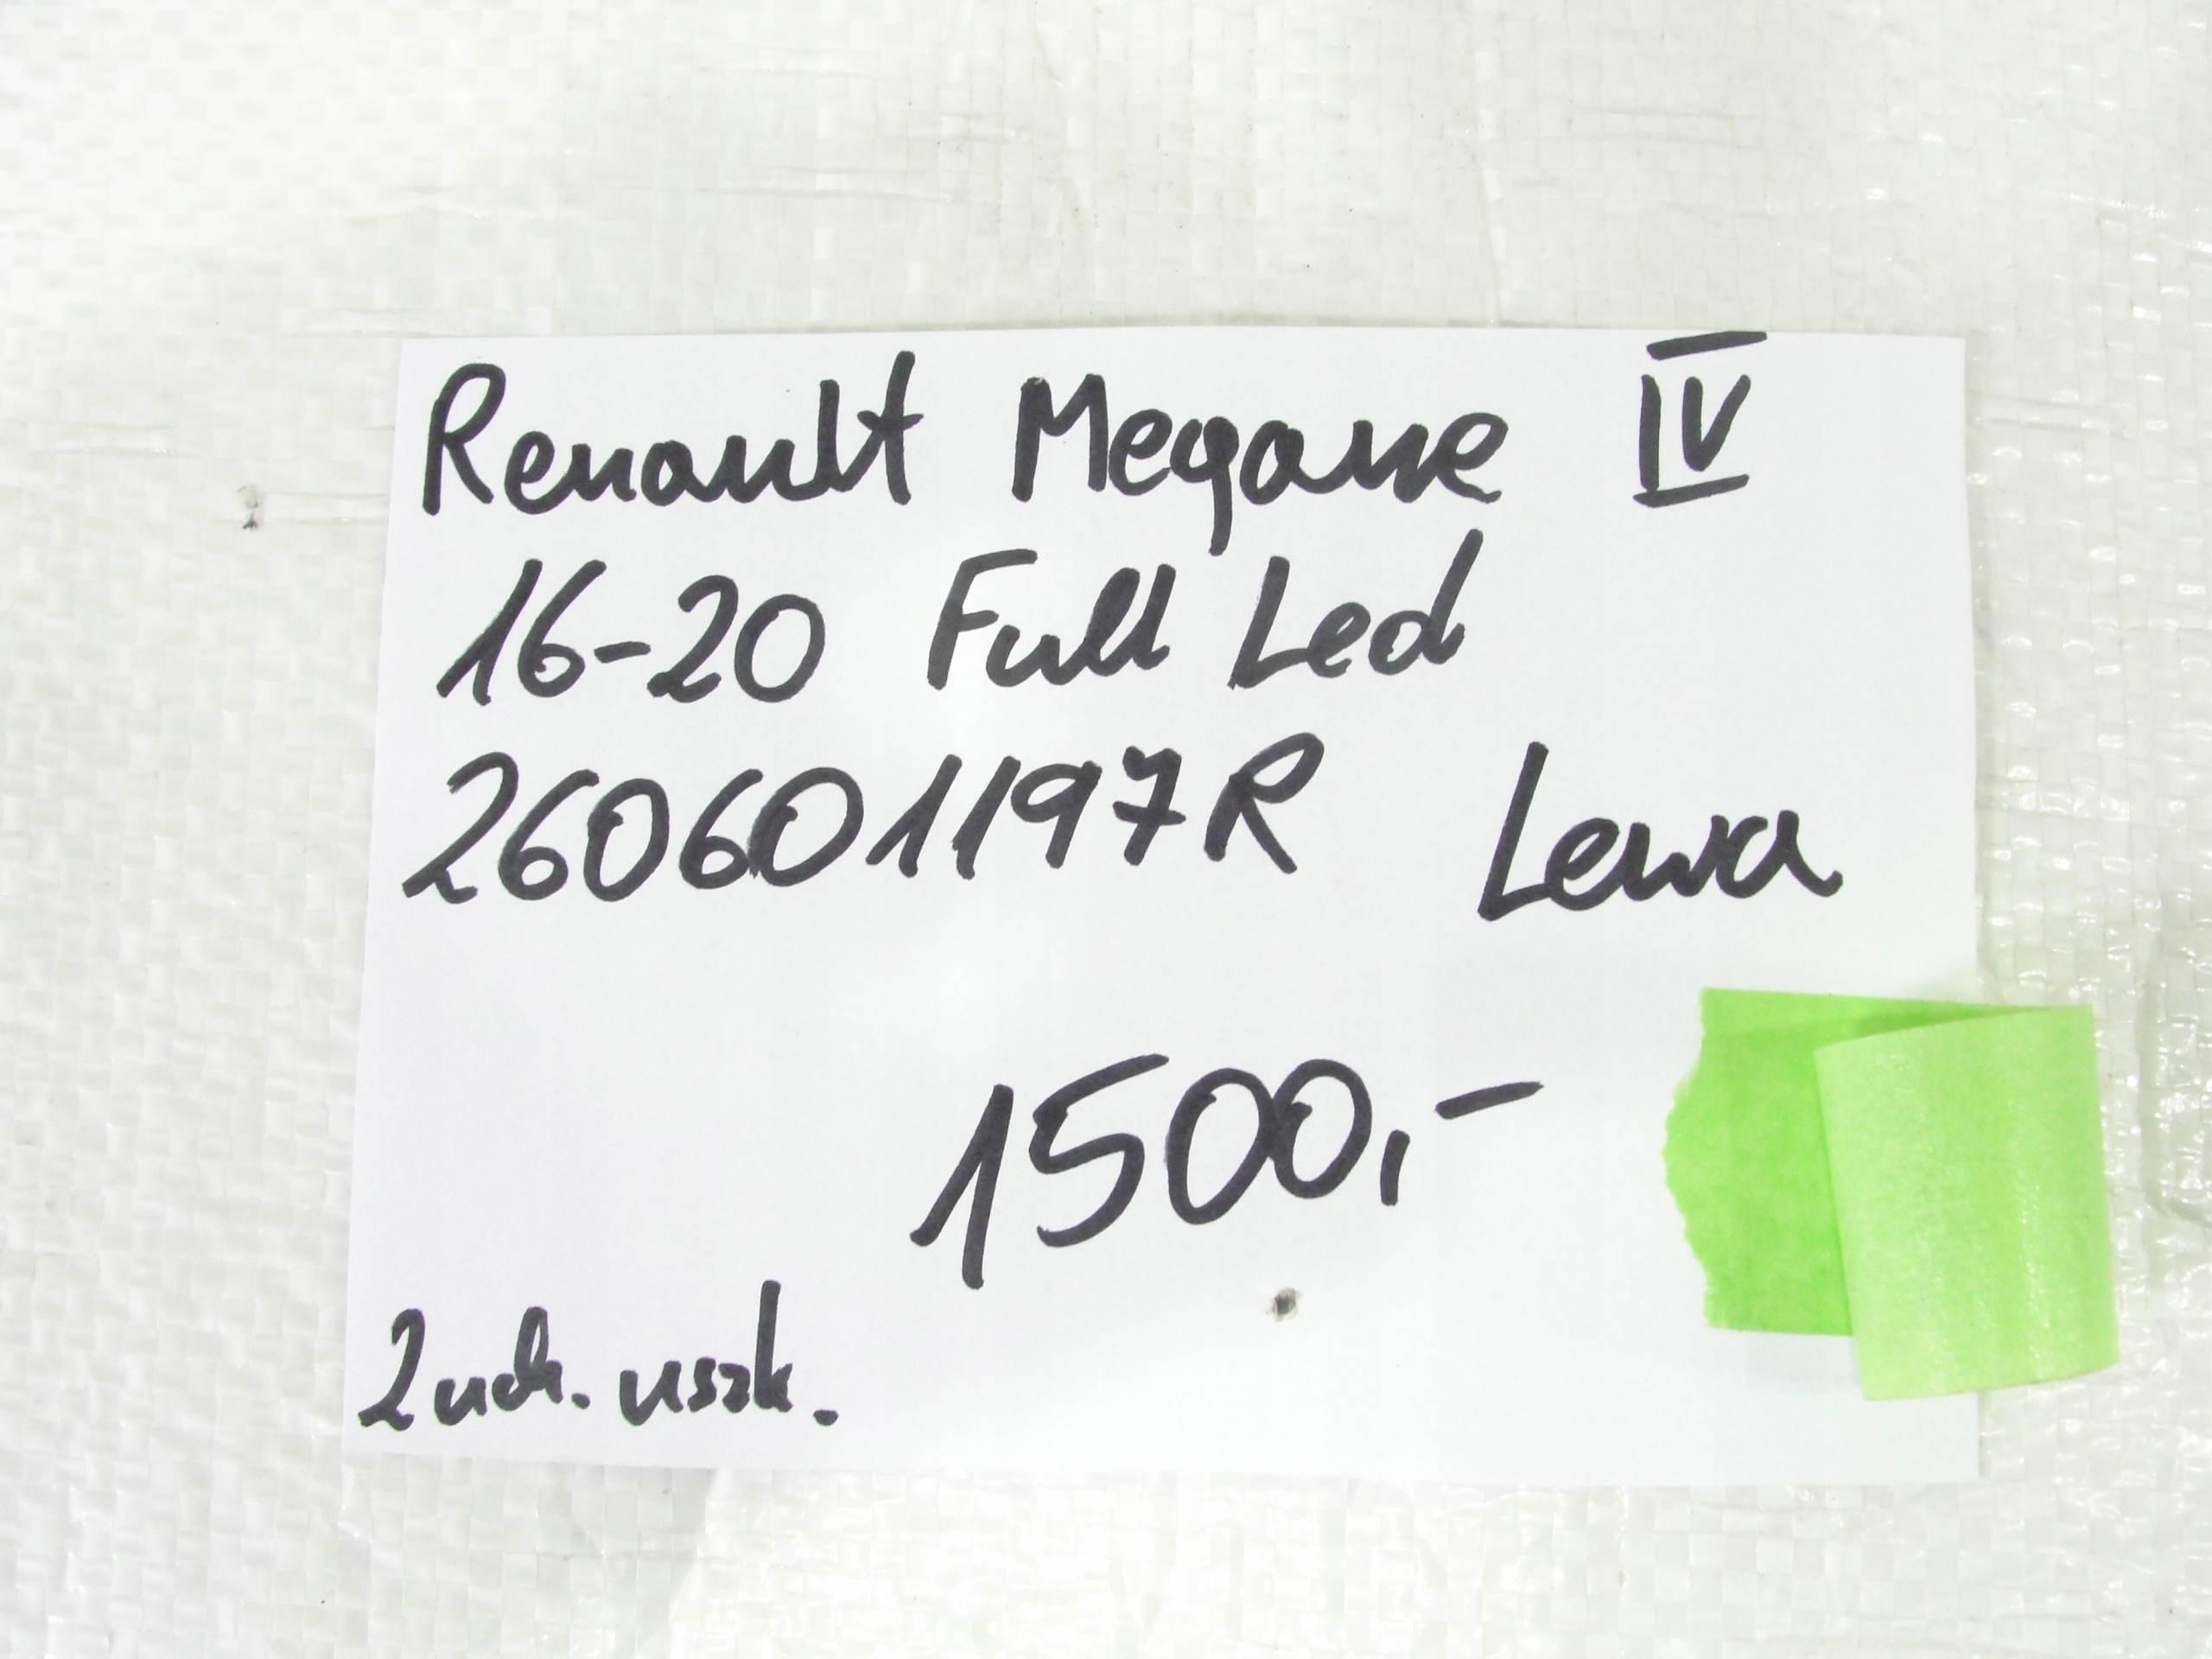 Renault Megane IV
16-20 Full Led
260601197R Lewa
1500,-
2 uch. uszk.